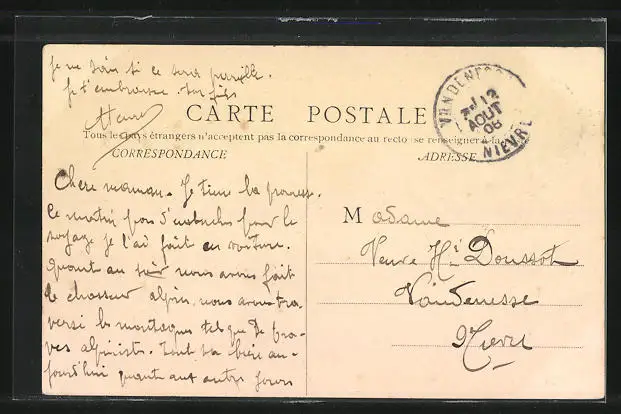 je ne sais si ce sera pareille.
Je t'embrasse ton fils
Henri
CARTE POSTALE
Tous les pays étrangers n'acceptent pas la correspondance au recto (se renseigner à la
CORRESPONDANCE
ADRESSE
VANDENESSE
12
AOUT
08
NIEVRE
Chère maman. Je tiens la promesse.
Ce matin pas d'embuches pour le
voyage je l'ai fait en voiture.
Quant au soir nous avons fait
le chasseur alpin, nous avons tra
versé les montagnes tel que de bra-
ves alpinistes. Tout va bien au-
jourd'hui quant aux autres jours
Madame
Veuve Doussot
Vandenesse
Nièvre